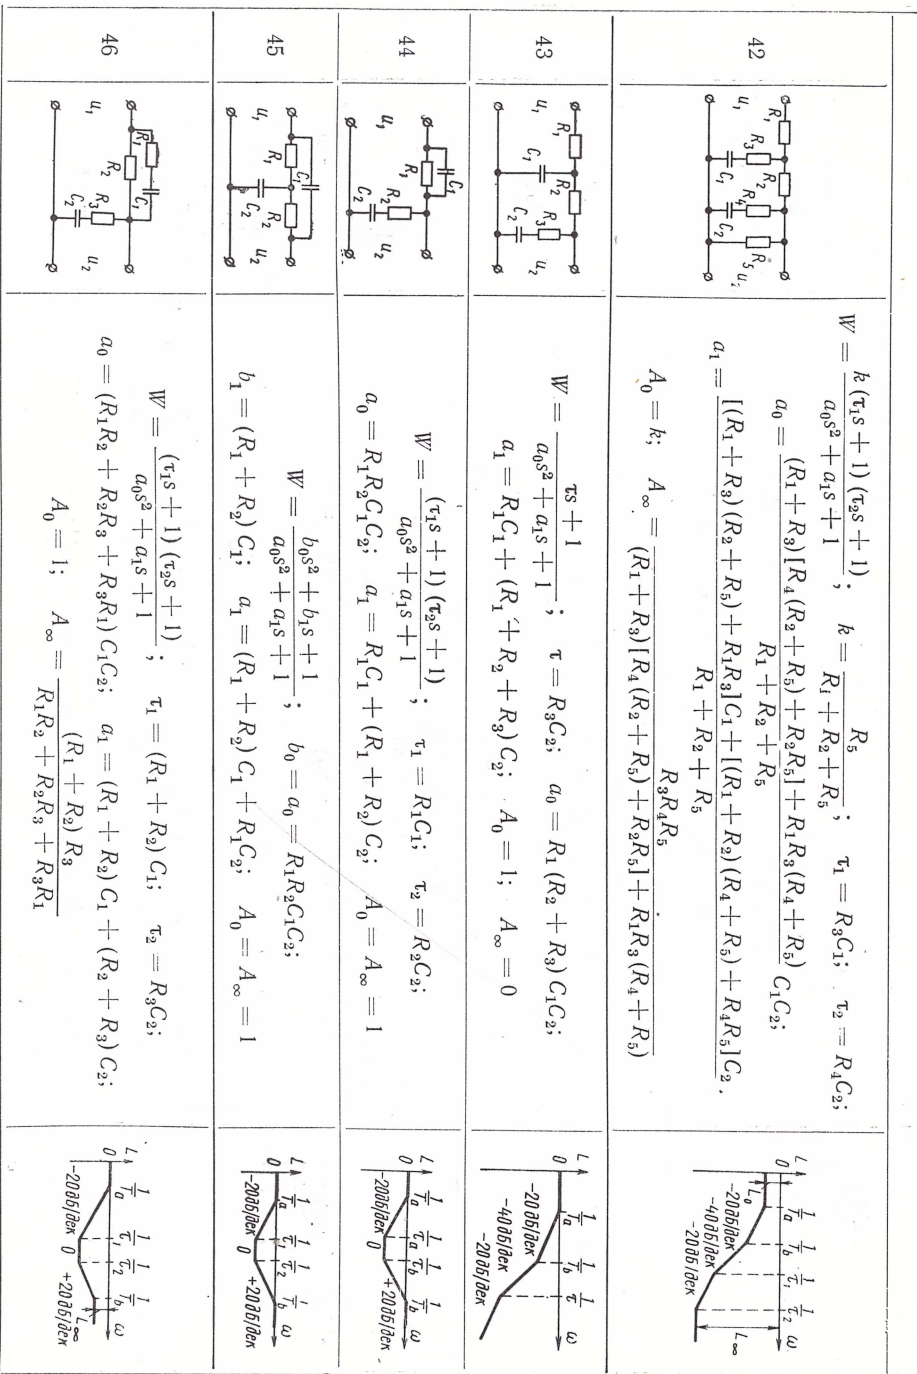 42
u₁ R₁ R₃ C₁ R₂ R₄ C₂ R₅ u₂
W = k (τ₁s + 1) (τ₂s + 1) / (a₀s² + a₁s + 1); k = R₅ / (R₁ + R₂ + R₅); τ₁ = R₃C₁; τ₂ = R₄C₂;
a₀ = (R₁ + R₃) [R₄ (R₂ + R₅) + R₂R₅] + R₁R₃ (R₄ + R₅) / (R₁ + R₂ + R₅) C₁C₂;
a₁ = [(R₁ + R₃) (R₂ + R₅) + R₁R₃] C₁ + [(R₁ + R₂) (R₄ + R₅) + R₄R₅] C₂ / (R₁ + R₂ + R₅).
A₀ = k; A∞ = R₃R₄R₅ / (R₁ + R₃) [R₄ (R₂ + R₅) + R₂R₅] + R₁R₃ (R₄ + R₅)
L 0 L₀ 1/Tₐ 1/T_b 1/τ₁ 1/τ₂ ω
-20дБ/дек
-40дБ/дек
-20дБ/дек
L∞
43
u₁ R₁ C₁ R₂ R₃ C₂ u₂
W = τs + 1 / (a₀s² + a₁s + 1); τ = R₃C₂; a₀ = R₁ (R₂ + R₃) C₁C₂;
a₁ = R₁C₁ + (R₁ + R₂ + R₃) C₂; A₀ = 1; A∞ = 0
L 0 1/Tₐ 1/T_b 1/τ ω
-20дБ/дек
-40дБ/дек
-20дБ/дек
44
u₁ R₁ C₁ R₂ C₂ u₂
W = (τ₁s + 1) (τ₂s + 1) / (a₀s² + a₁s + 1); τ₁ = R₁C₁; τ₂ = R₂C₂;
a₀ = R₁R₂C₁C₂; a₁ = R₁C₁ + (R₁ + R₂) C₂; A₀ = A∞ = 1
L 0 1/Tₐ 1/τₐ 1/τ_b 1/T_b ω
-20дБ/дек 0 +20дБ/дек
45
u₁ R₁ C₁ R₂ C₂ u₂
W = b₀s² + b₁s + 1 / (a₀s² + a₁s + 1); b₀ = a₀ = R₁R₂C₁C₂;
b₁ = (R₁ + R₂) C₁; a₁ = (R₁ + R₂) C₁ + R₁C₂; A₀ = A∞ = 1
L 0 1/Tₐ 1/τ₁ 1/τ₂ 1/T_b ω
-20дБ/дек 0 +20дБ/дек
46
u₁ R₁ C₁ R₂ R₃ C₂ u₂
W = (τ₁s + 1) (τ₂s + 1) / (a₀s² + a₁s + 1); τ₁ = (R₁ + R₂) C₁; τ₂ = R₃C₂;
a₀ = (R₁R₂ + R₂R₃ + R₃R₁) C₁C₂; a₁ = (R₁ + R₂) C₁ + (R₂ + R₃) C₂;
A₀ = 1; A∞ = (R₁ + R₂) R₃ / (R₁R₂ + R₂R₃ + R₃R₁)
L 0 1/Tₐ 1/τ₁ 1/τ₂ 1/T_b ω
-20дБ/дек 0 +20дБ/дек L∞